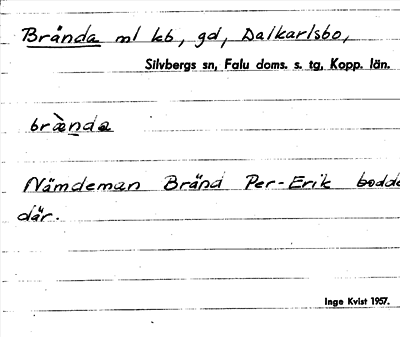 Brända ml kb, gd, Dalkarlsbo,
Silvbergs sn, Falu doms. s. tg, Kopp. län.
brὰ̈nda
Nämdeman Bränd Per-Erik bodde
där.
Inge Kvist 1957.